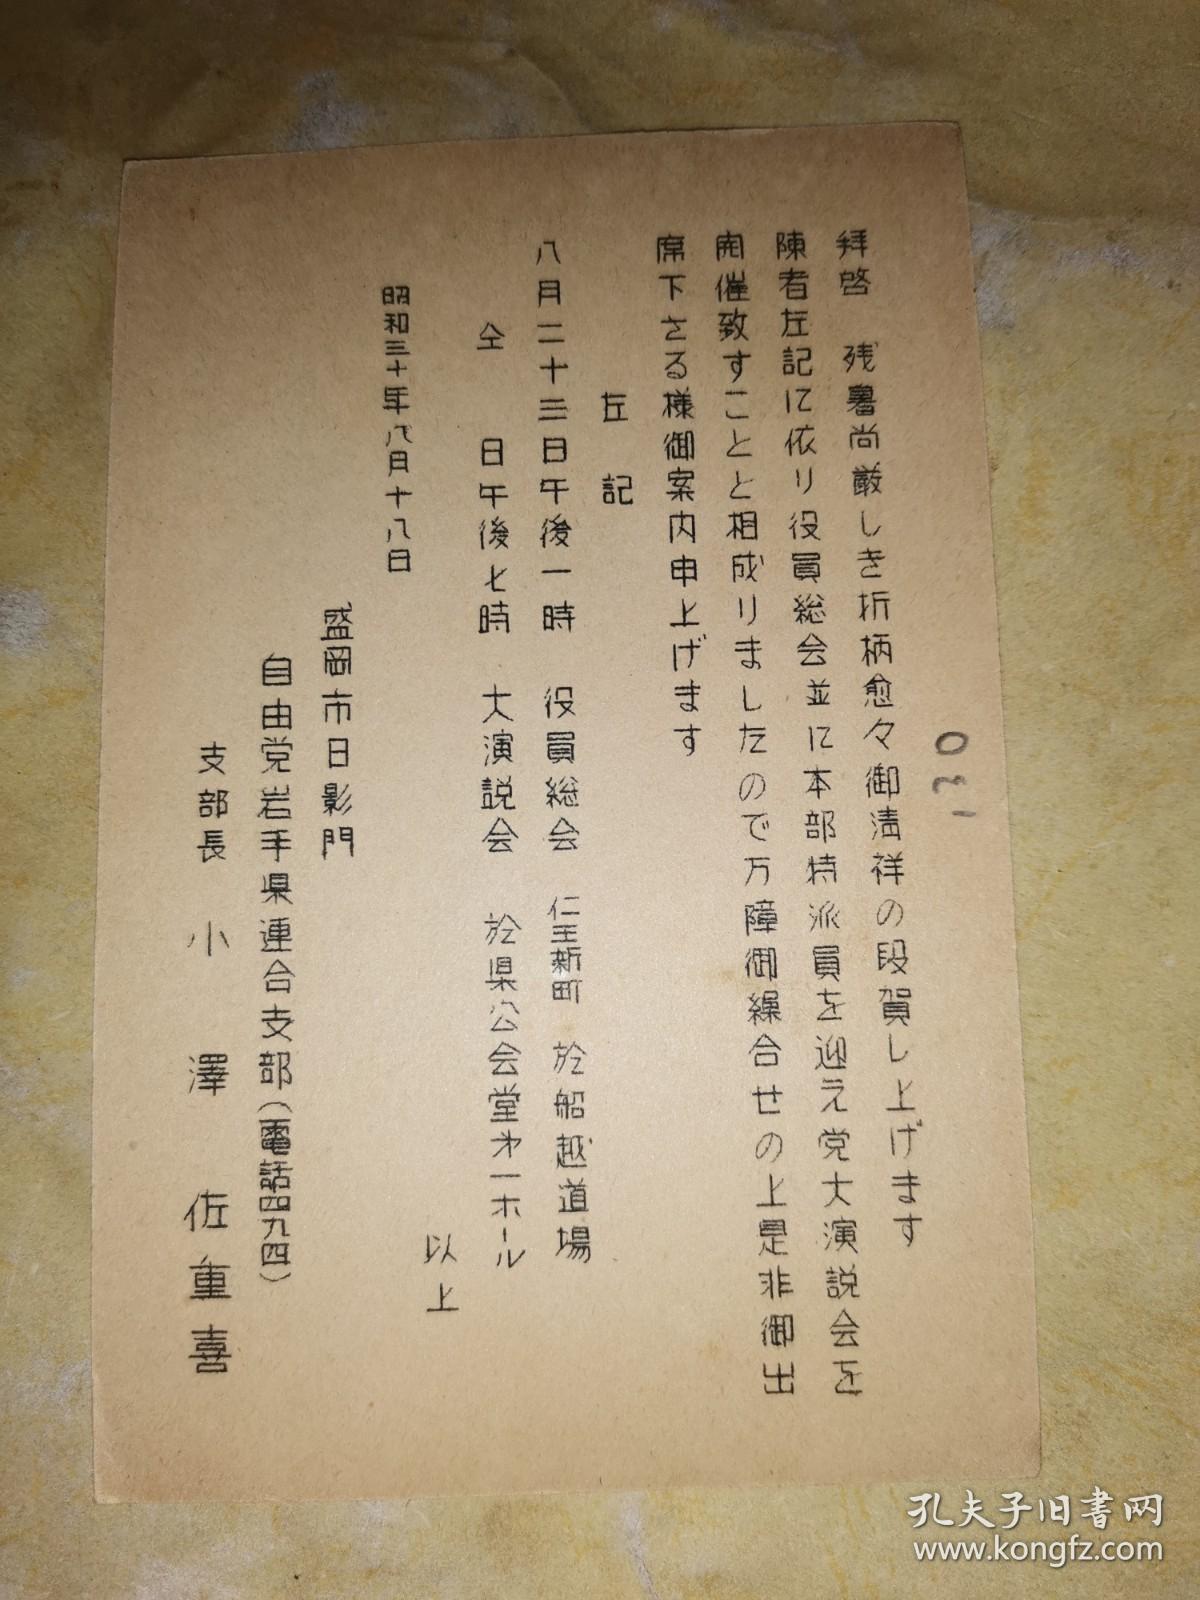 拝啓　残暑尚厳しき折柄愈々御清祥の段賀し上げます
陳者左記に依り役員総会並に本部特派員を迎え党大演説会を
開催致すことと相成りましたので万障御繰合せの上是非御出
席下さる様御案内申上げます
左記
八月二十三日午後一時　役員総会　仁王新町　於船越道場
仝　日午後七時　大演説会　於県公会堂才一ホール
以上
昭和三十年八月十八日
盛岡市日影門
自由党岩手県連合支部(電話四九四)
支部長　小澤佐重喜
孔夫子旧书网
www.kongfz.com